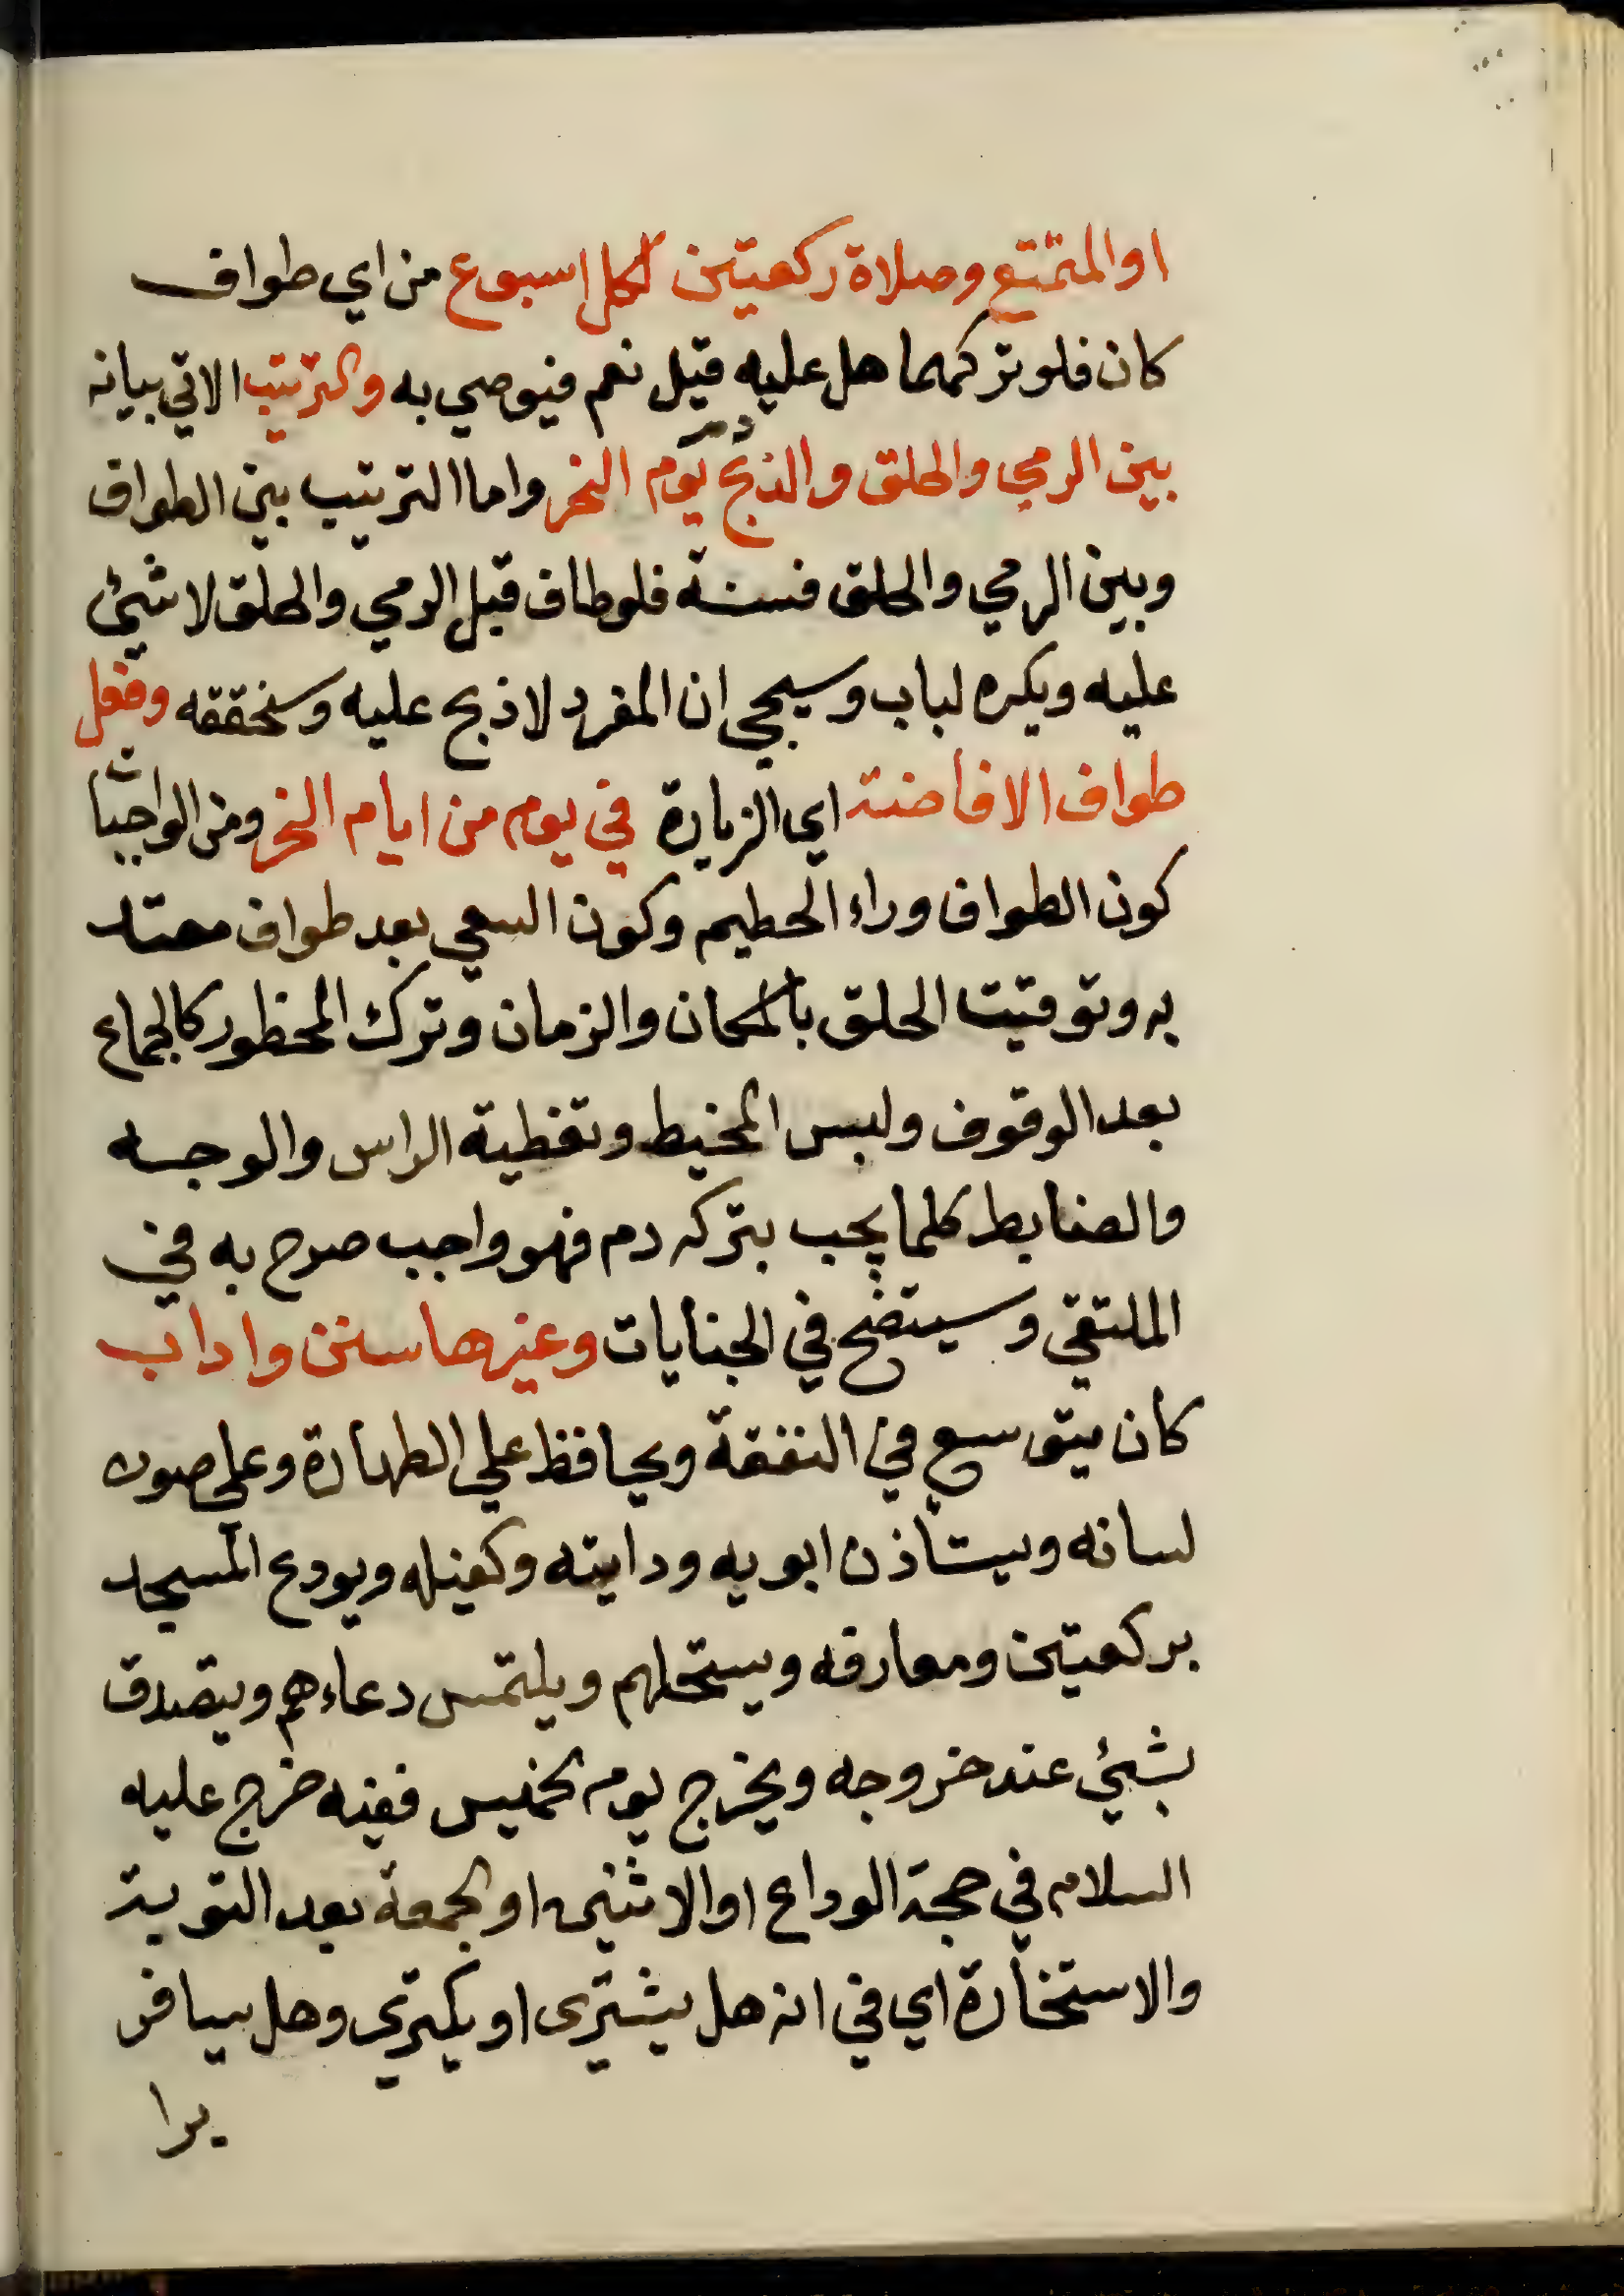 او المتمتع وصلاة ركعتين لكل اسبوع من اي طواف
كان فلو تركهما هل عليه قيل نعم فيوصي به والترتيب الاتي بيانه
بين الرمي والحلق والذبح يوم النحر واما الترتيب بين الطواف
وبين الرمي والحلق فسنة فلو طاف قبل الرمي والحلق لا شيئ
عليه ويكره لباب وسيجي ان المفرد لا ذبح عليه وسنحققه وفعل
طواف الافاضة اي الزيارة في يوم من ايام النحر ومن الواجبات
كون الطواف وراء الحطيم وكون السعي بعد طواف معتد
به وتوقيت الحلق بالمكان والزمان وترك المحظور كالجماع
بعد الوقوف ولبس المخيط وتغطية الراس والوجه
والضابط كلما يجب بتركه دم فهو واجب صرح به في
الملتقي وسيتضح في الجنايات وغيرها سنن واداب
كان يتوسع في النفقة ويحافظ علي الطهارة وعلي صون
لسانه ويستأذن ابويه ودايته وكفيله ويودع المسجد
بركعتين ومعارفه ويستحلهم ويلتمس دعاءهم ويتصدق
بشيئ عند خروجه ويخرج يوم الخميس ففيه خرج عليه
السلام في حجة الوداع او الاثنين او الجمعة بعد التوبة
والاستخارة اي في انه هل يشتري او يكتري وهل يسافر
برا